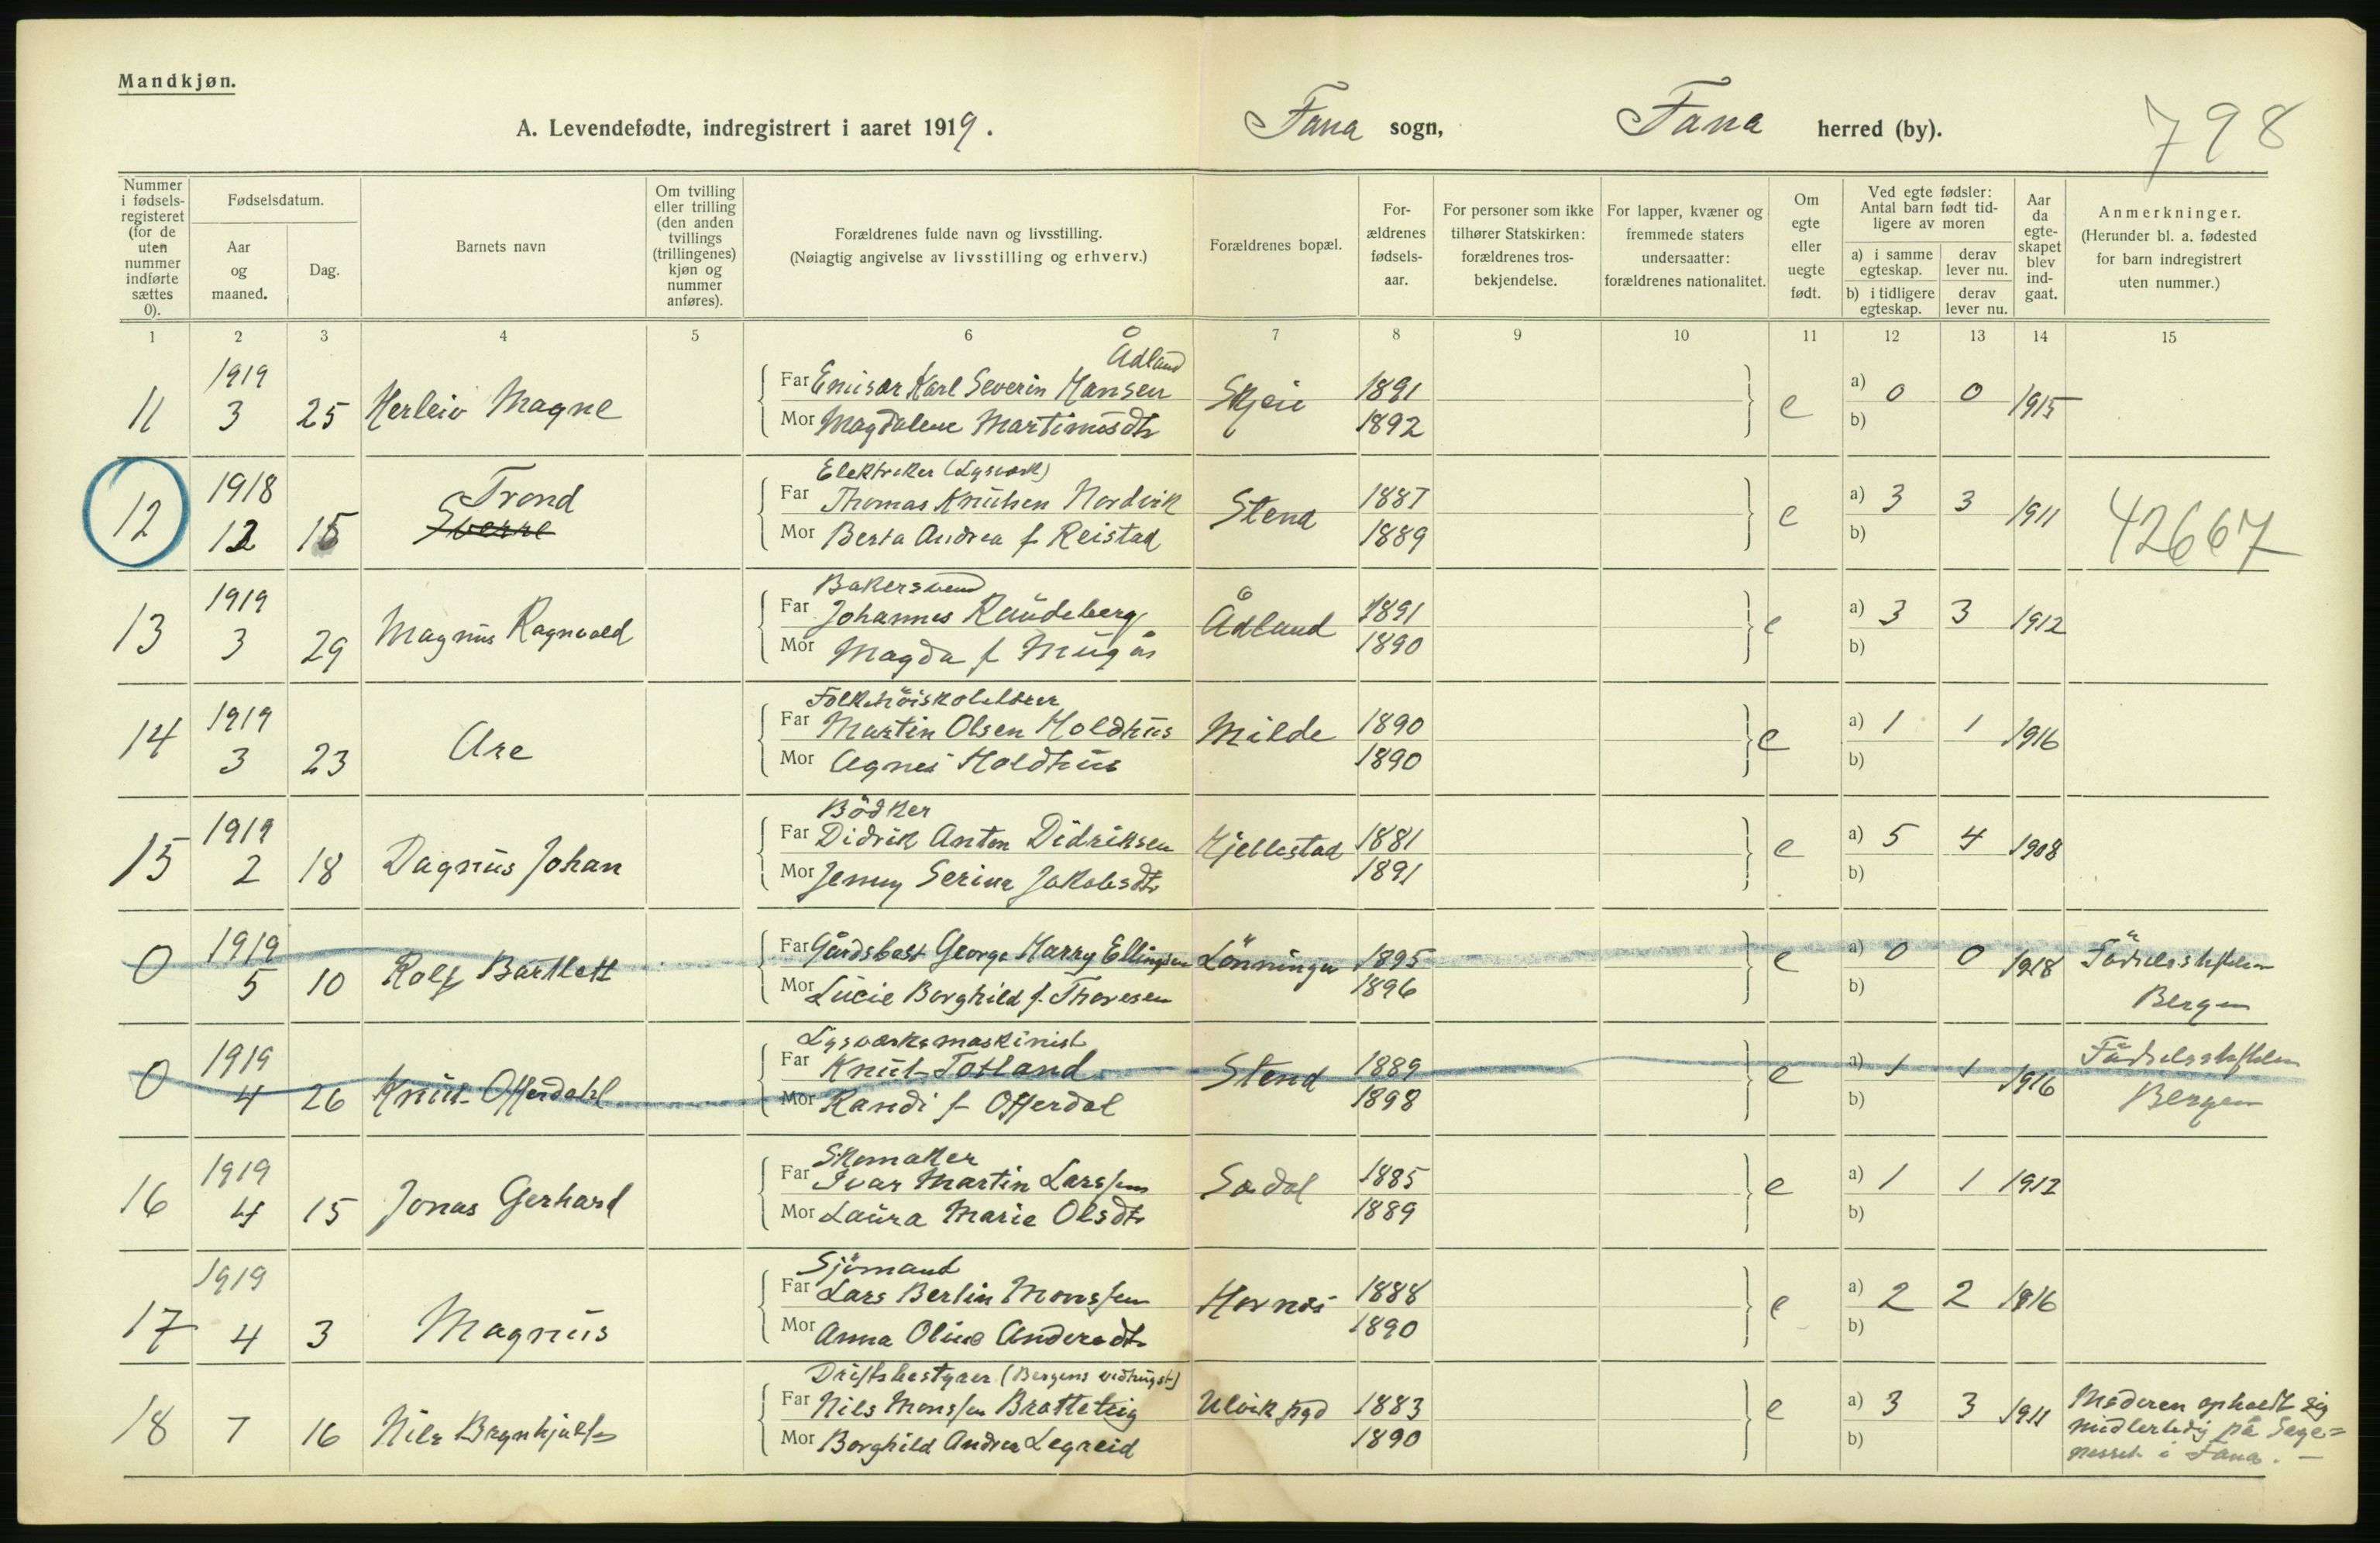 Mandkjøn.
A. Levendefødte, indregistrert i aaret 1919.
Fana sogn,
Fana herred (by).
798
Nummer i fødsels-registeret (for de uten nummer indførte sættes 0).
Fødselsdatum.
Aar og maaned.
Dag.
Barnets navn
Om tvilling eller trilling (den anden tvillings (trillingenes) kjøn og nummer anføres).
Forældrenes fulde navn og livsstilling.
(Nøiagtig angivelse av livsstilling og erhverv.)
Forældrenes bopæl.
For-ældrenes fødsels-aar.
For personer som ikke tilhører Statskirken: forældrenes tros-bekjendelse.
For lapper, kvæner og fremmede staters undersaatter: forældrenes nationalitet.
Om egte eller uegte født.
Ved egte fødsler: Antal barn født tid-ligere av moren
a) i samme egteskap.
derav lever nu.
b) i tidligere egteskap.
derav lever nu.
Aar da egte-skapet blev ind-gaat.
Anmerkninger.
(Herunder bl. a. fødested for barn indregistrert uten nummer.)
1 2 3 4 5 6 7 8 9 10 11 12 13 14 15
Ådland
11 1919 3 25 Herleiv Magne
Far Emisær Karl Severin Hansen Skjeie 1891 e a) 0 0 1915
Mor Magdalene Martinusdtr 1892 b)
12 1918 12 15 Trond
Sverre
Elektriker (Lysverk)
Far Thomas Knutsen Nordvik Stend 1887 e a) 3 3 1911 42667
Mor Berta Andrea f Reistad 1889 b)
13 1919 3 29 Magnus Ragnvald
Bakersvend
Far Johannes Raudeberg Ådland 1891 e a) 3 3 1912
Mor Magda f Mugås 1890 b)
14 1919 3 23 Are
Folkehöiskolelærer
Far Martin Olsen Holdhus Milde 1890 e a) 1 1 1916
Mor Agnes Holdhus 1890 b)
15 1919 2 18 Dagnus Johan
Bödker
Far Didrik Anton Didriksen Hjellestad 1881 e a) 5 4 1908
Mor Jenny Serine Jakobsdtr 1891 b)
0 1919 5 10 Rolf Bartlett
Far Gårdsbest George Harry Ellingsen Lönningen 1895 e a) 0 0 1918 Födselsstiftelsen
Mor Lucie Borghild f. Thoresen 1896 b) Bergen
0 1919 4 26 Knut Offerdahl
Lysverksmaskinist
Far Knut Totland Stend 1889 e a) 1 1 1916 Födselsstiftelsen
Mor Randi f Offerdal 1898 b) Bergen
16 1919 4 15 Jonas Gerhard
Skomaker
Far Ivar Martin Larssen Sædal 1885 e a) 1 1 1912
Mor Laura Marie Olsdtr 1889 b)
17 1919 4 3 Magnus
Sjömand
Far Lars Berlin Monssen Hornes 1888 e a) 2 2 1916
Mor Anna Oline Andersdtr 1890 b)
18 7 16 Nils Brynhjulf
Driftsbestyrer (Bergens
Far Nils Monssen Bratteteig Ulvik 1883 e a) 3 3 1911 Moderen opholdt sig
Mor Borghild Andrea Legreid 1890 b) midlertidig på Sage=
nesset i Fana. —